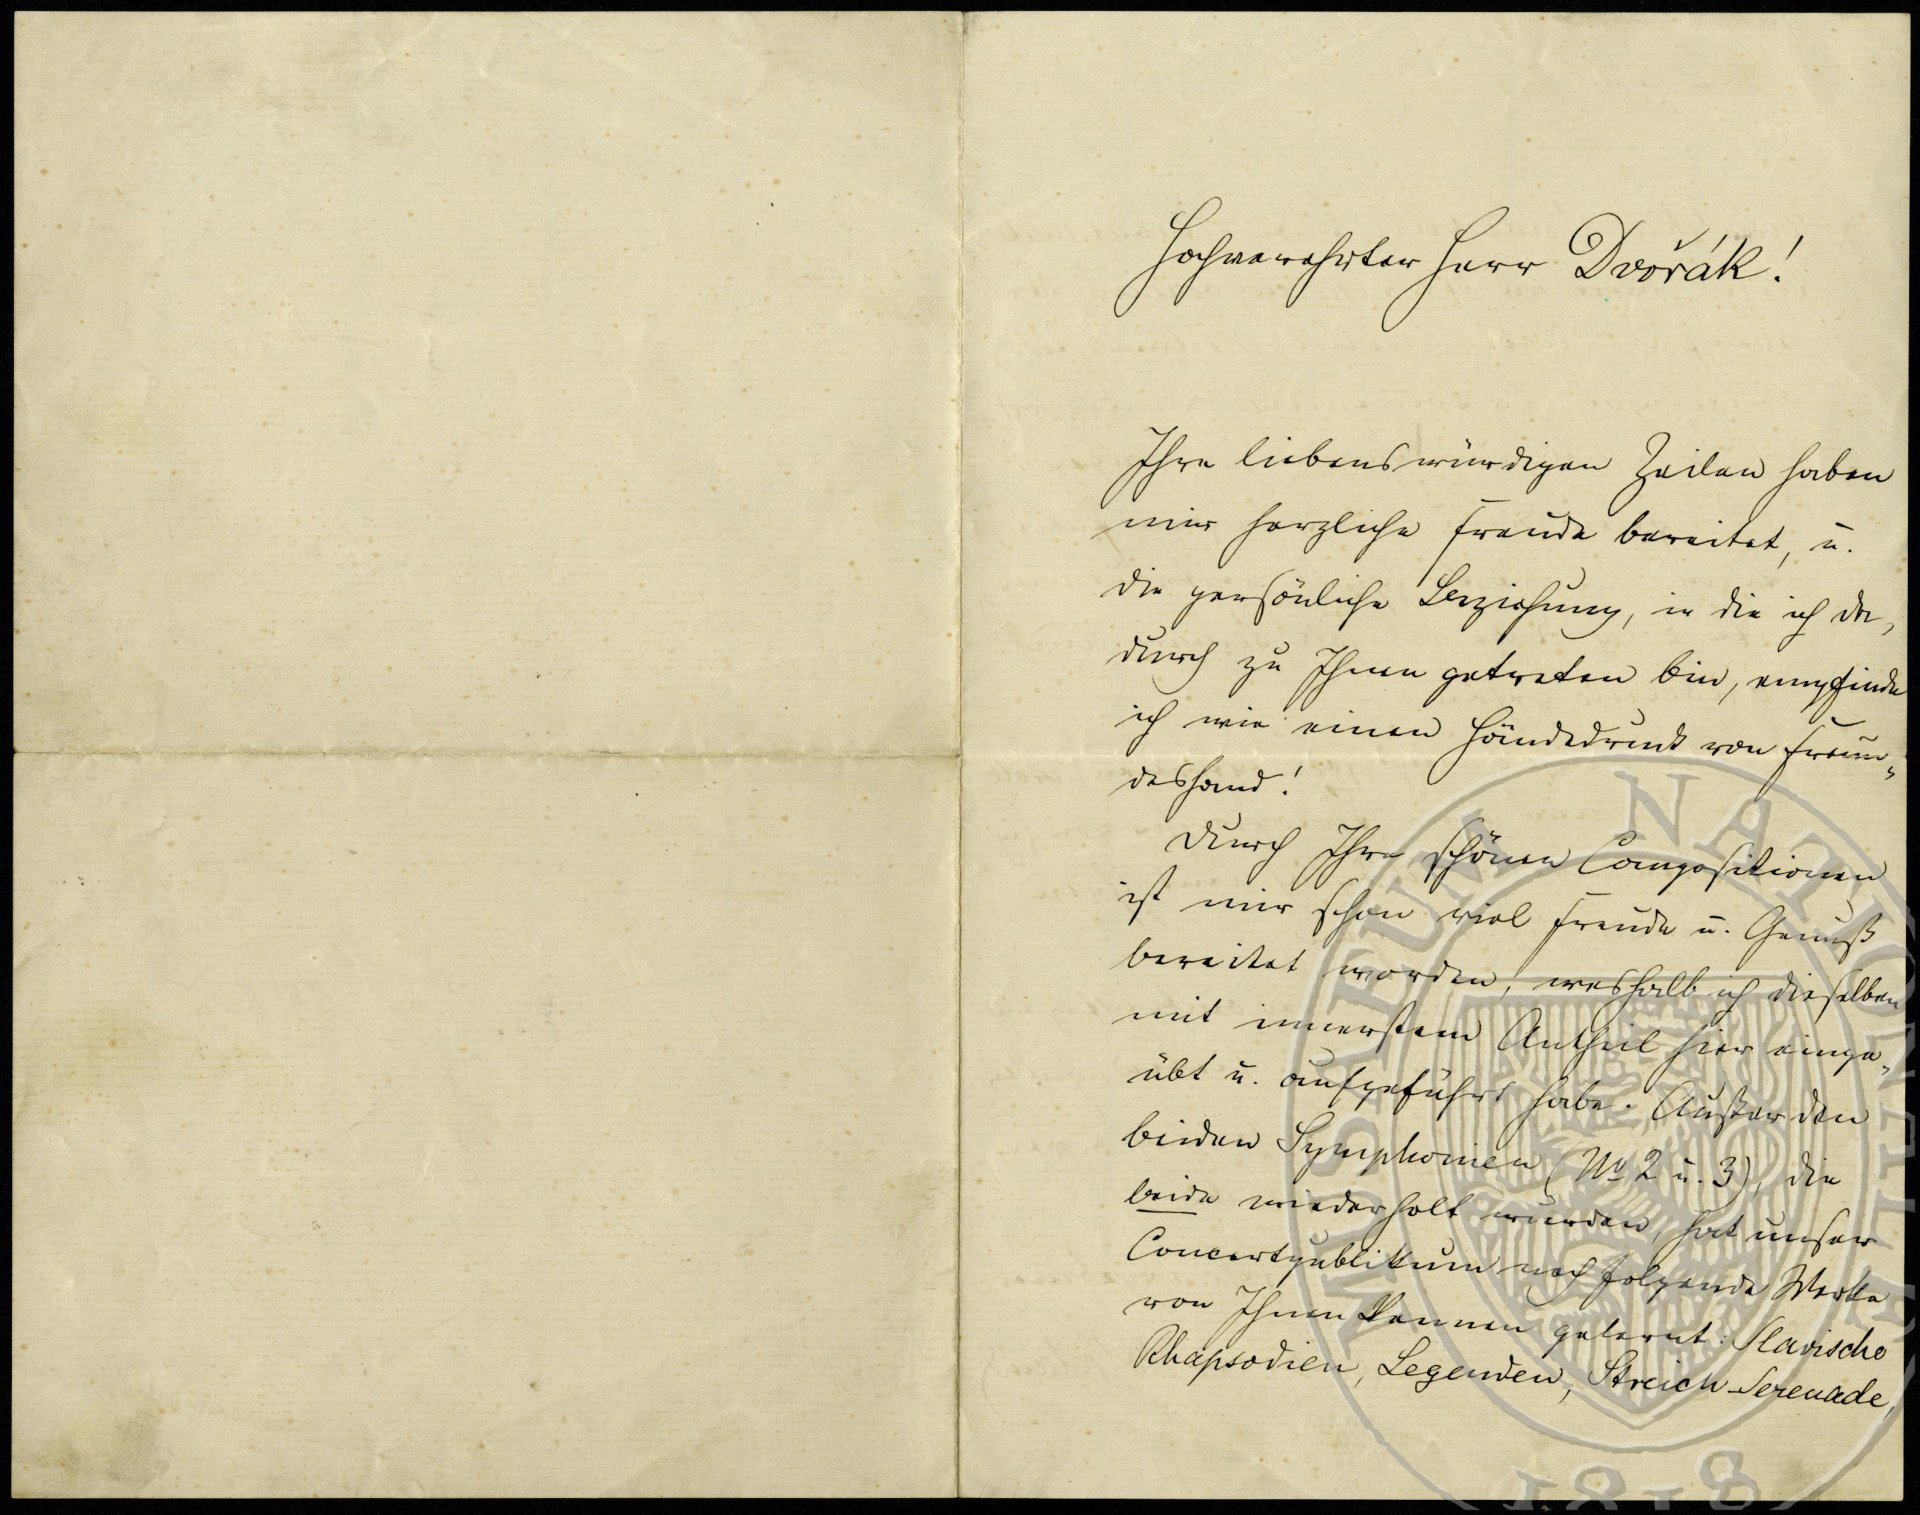 Hochverehrter Herr Dvořák!
Ihre liebenswürdigen Zeilen haben
mir herzliche Freude bereitet, u.
die persönliche Beziehung, in die ich da-
durch zu Ihnen getreten bin, empfinde
ich wie einen Händedruck von Freun-
deshand!
Durch Ihre schönen Compositionen
ist mir schon viel Freude u. Genuß
bereitet worden, weshalb ich dieselben
mit innerstem Antheil hier einge-
übt u. aufgeführt habe. Außer den
beiden Symphonien (No 2 u. 3), die
beide wiederholt wurden, hat unser
Concertpublikum noch folgende Werke
von Ihnen kennen gelernt: Slavische
Rhapsodien, Legenden, Streich-Serenade,
MUSAEUM NATIONALE
1818